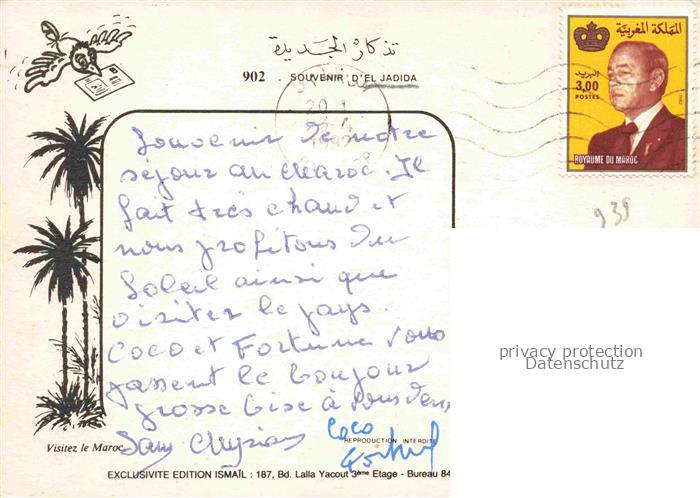 تذكار الجديدة
902 . SOUVENIR D'EL JADIDA
المملكة المغربية
البريد
3,00
POSTES
ROYAUME DU MAROC
939
Souvenir de notre
séjour au Maroc. Il
fait très chaud et
nous profitons du
Soleil ainsi que
visiter le pays.
Coco et Fortune vous
passent le bonjour
grosse bise à vous deux
Sam
Coco
REPRODUCTION INTERDITE
Visitez le Maroc
EXCLUSIVITE EDITION ISMAÏL : 187, Bd. Lalla Yacout 3ème Etage - Bureau 84
privacy protection
Datenschutz